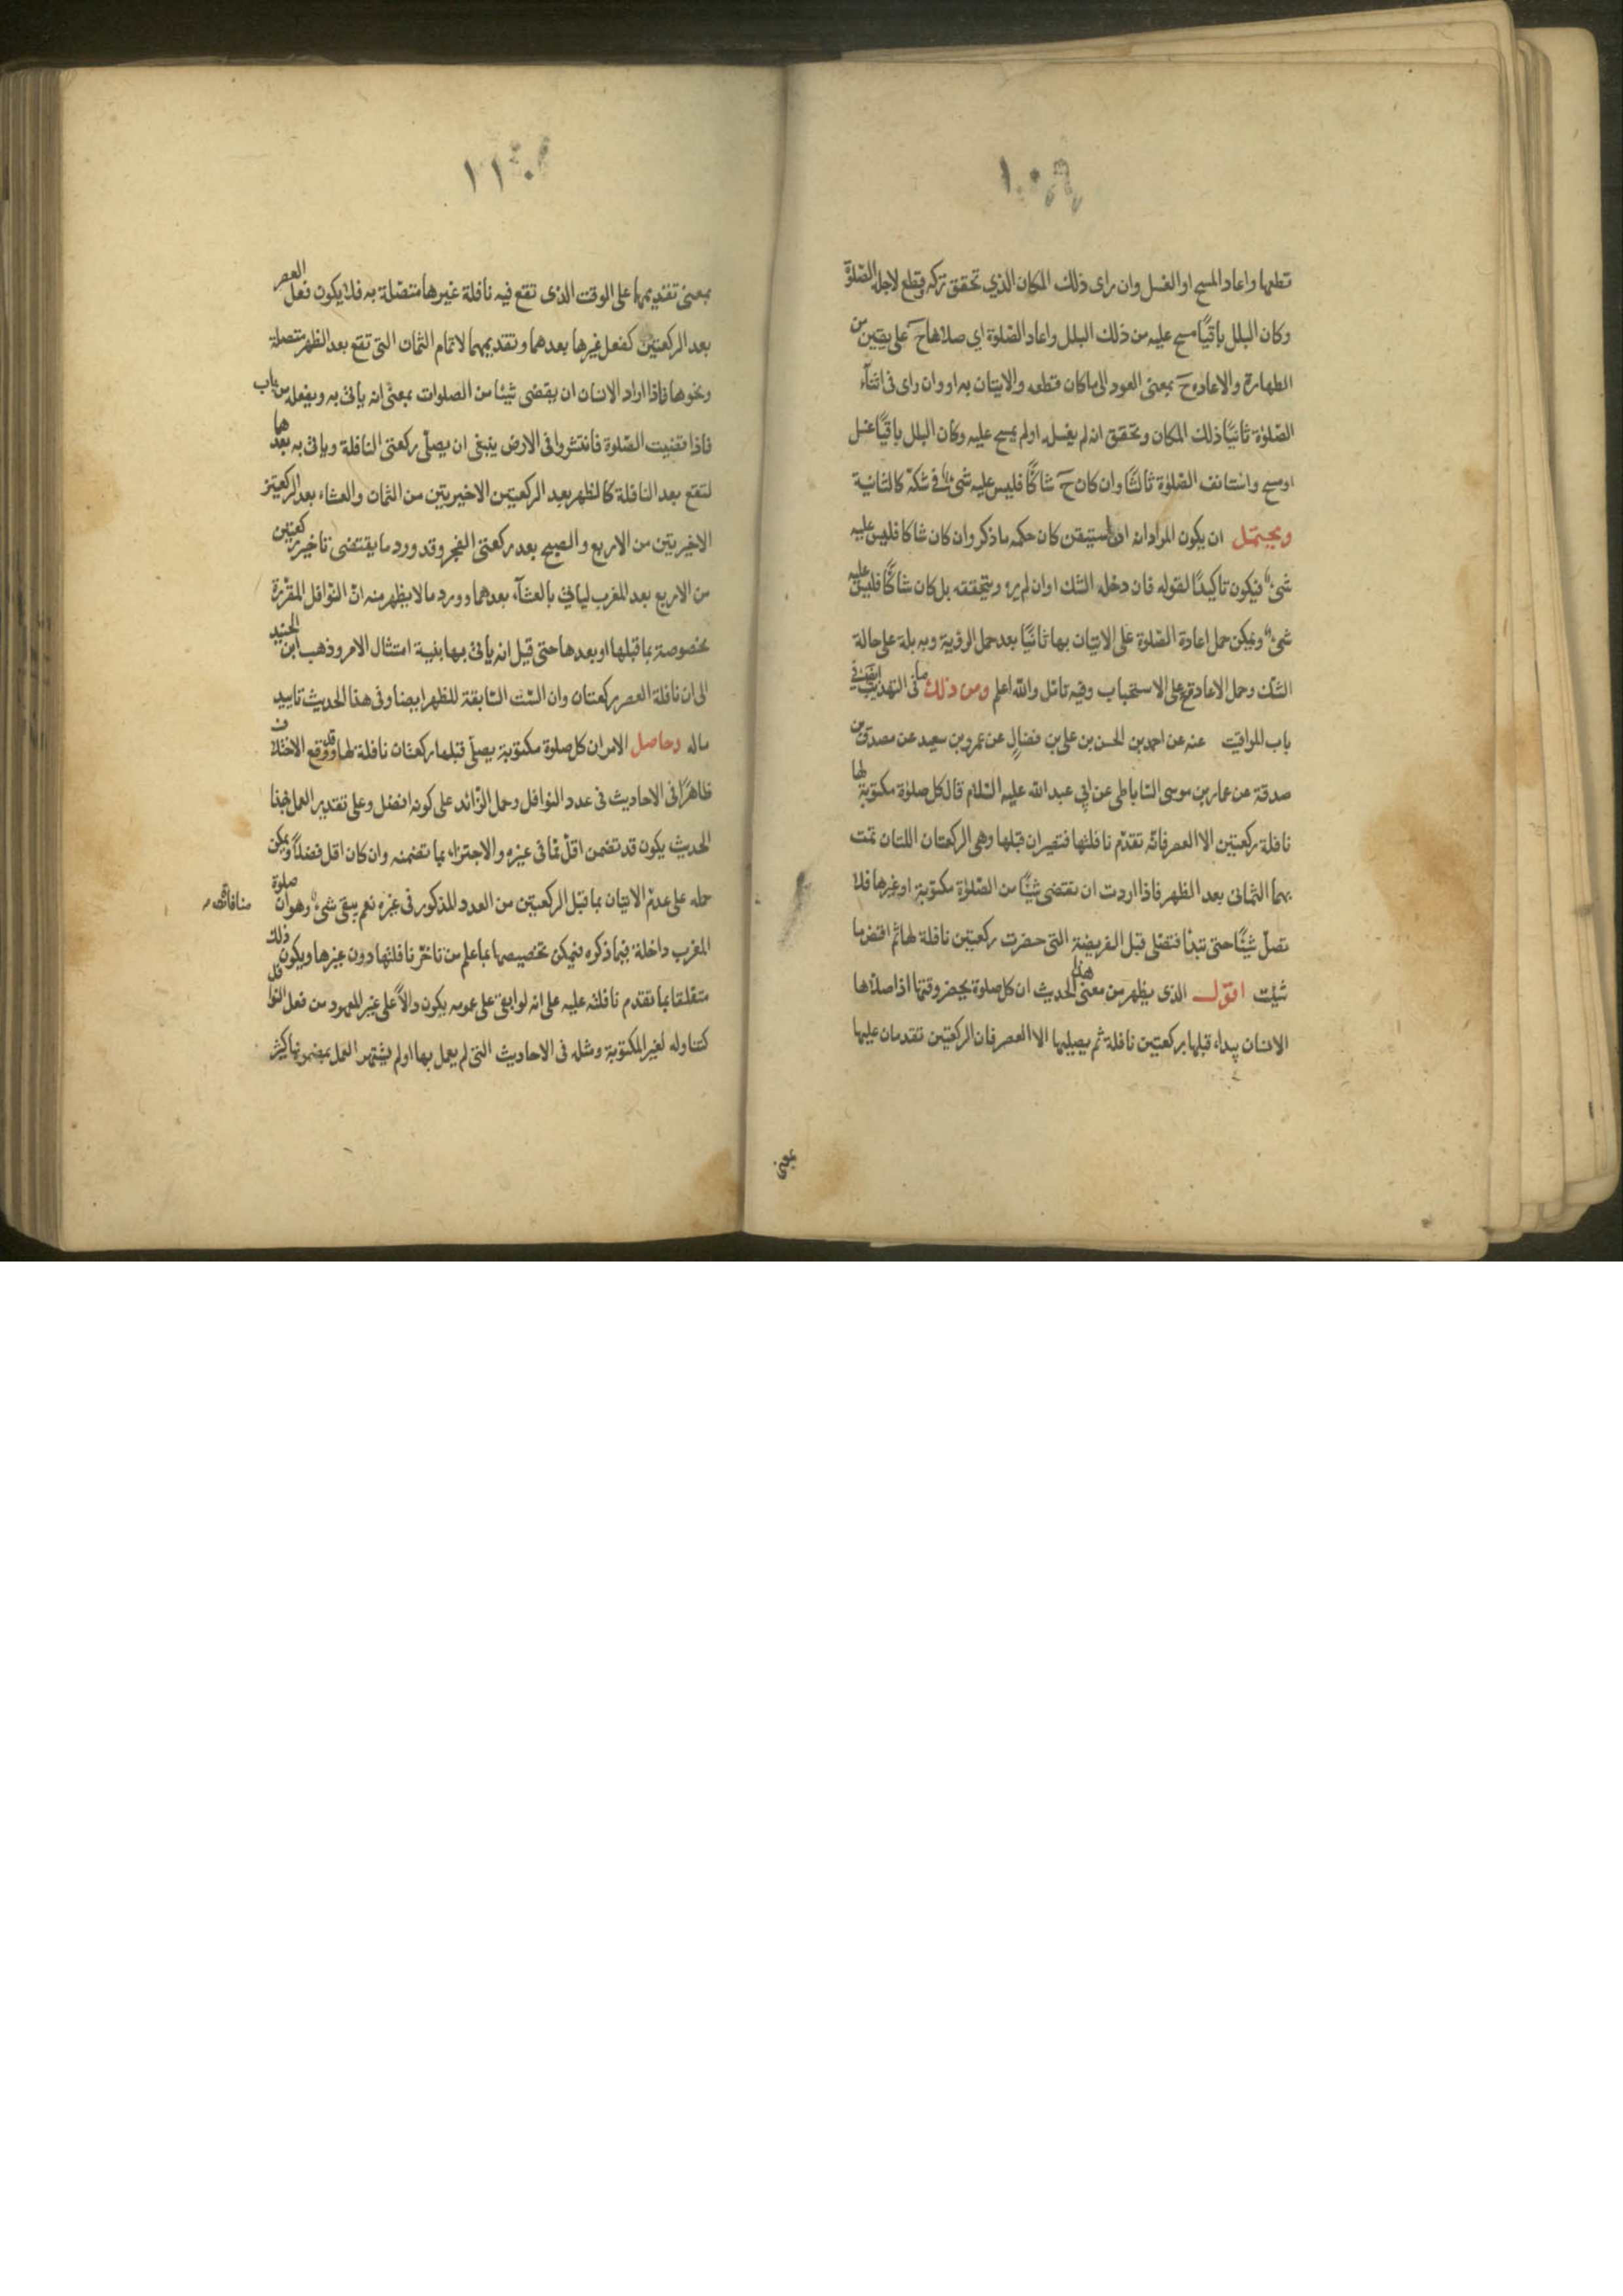 ١٠٨
قطعها واعاد المسح او الغسل وان رای ذلك المكان الذي تحقق تركه وقطع لاجله الصّلوة
وكان البلل باقيًا مسح عليه من ذلك البلل واعاد الصّلوة اي صلاها ح على يقين من
الطهارة والاعادة ح بمعنى العود الى ما كان قطعه والاتيان به او وان رای فی اثنآء
الصّلوة ثانيًا ذلك المكان وتحقق انه لم يغسل او لم يمسح عليه وكان البلل باقيًا غسل
او مسح واستانف الصّلوة ثالثًا وان كان ح شاكًّا فليس عليه شیء فی شكه كالثانية
ويحتمل ان يكون المراد انه ان استيقن كان حكمه ما ذكر وان كان شاكا فليس عليه
شیء فيكون تاكيدًا لقوله فان دخله الشك او ان لم يره ويتحققه بل كان شاكًّا فليس عليه
شیء ويمكن حمل اعادة الصّلوة على الاتيان بها ثانيًا بعد حمل الرؤية وبه بلة على حالة
الشك وحمل الاعادة على الاستحباب وفيه تامّل والله اعلم ومن ذلك ما فی التهذيب فی
باب المواقيت عنه عن احمد بن الحسن بن علی بن فضال عن عمرو بن سعيد عن مصدق بن
صدقة عن عمار بن موسى السّاباطی عن ابی عبد الله عليه السّلام قال كل صلوة مكتوبة لها
نافلة ركعتين الا العصر فانّه تقدّم نافلتها فتصيران قبلها وهی الركعتان اللتان تمت
بهما الثمانی بعد الظهر فاذا اردت ان تقتضی شيئًا من الصّلوة مكتوبة او غيرها فلا
تصلّ شيئًا حتى تبدأ فتصلی قبل الفريضة التی حضرت ركعتين نافلة لها ثم اقض ما
شئت اقول الذی يظهر من معنى هذا الحديث ان كل صلوة يحضر وقتها اذا صلاها
الانسان يبداء قبلها بركعتين نافلة ثم يصليها الا العصر فان الركعتين تقدمان عليها
بمعنى
١١٠
بمعنى تقديمها على الوقت الذی تقع فيه نافلة غيرها متصلة به فلا يكون فعل العصر
بعد الركعتين كفعل غيرها بعدهما وتقديمهما لاتمام الثمان التی تقع بعد الظهر متصلة
ونحوها فاذا اراد الانسان ان يقضی شيئا من الصلوات بمعنى انه ياتی به ويفعله من باب
فاذا قضيت الصّلوة فانتشروا فی الارض ينبغی ان يصلّی ركعتی النافلة وياتی به بعدها
لتقع بعد النافلة كالظهر بعد الركعتين الاخيرتين من الثمان والعشاء بعد الركعتين
الاخيرتين من الاربع والصبح بعد ركعتی الفجر وقد ورد ما يقتضی تاخير ركعتين
من الاربع بعد المغرب لياتی بالعشآء بعدهما وورد ما لا يظهر منه انّ النّوافل المقرّرة
مخصوصة بما قبلها او بعدها حتى قيل انه ياتی بها بنية امتثال الامر وذهب ابن الجنيد
الى ان نافلة العصر ركعتان وان السّت السّابقة للظهر ايضا وفی هذا الحديث تاييد
ما له وحاصل الامر ان كل صلوة مكتوبة يصلّی قبلها ركعتان نافلة لها وقد وقع الاختلاف
ظاهرًا فی الاحاديث فی عدد النوافل وحمل الزّائد على كونه افضل وعلى تقدير العمل بهذا
الحديث يكون قد تضمن اقلّ ممّا فی غيره والاجتزاء بما تضمنه وان كان اقل فضلًا ويمكن
حمله على عدم الاتيان بما قبل الركعتين من العدد المذكور فی غيره نعم يبقى شیء وهو ان صلوة
منافاته
المغرب داخلة فيما ذكره فيمكن تخصيصها بما علم من تاخّر نافلتها دون غيرها ويكون ذلك
متعلقا بما تقدم نافلته عليه على انه لو ابقی على عمومه يكون دالًّا على غير المعهود من فعل النوافل
كتناوله لغير المكتوبة ومثله فی الاحاديث التی لم يعمل بها او لم يشتهر العمل بمضمونها كثير